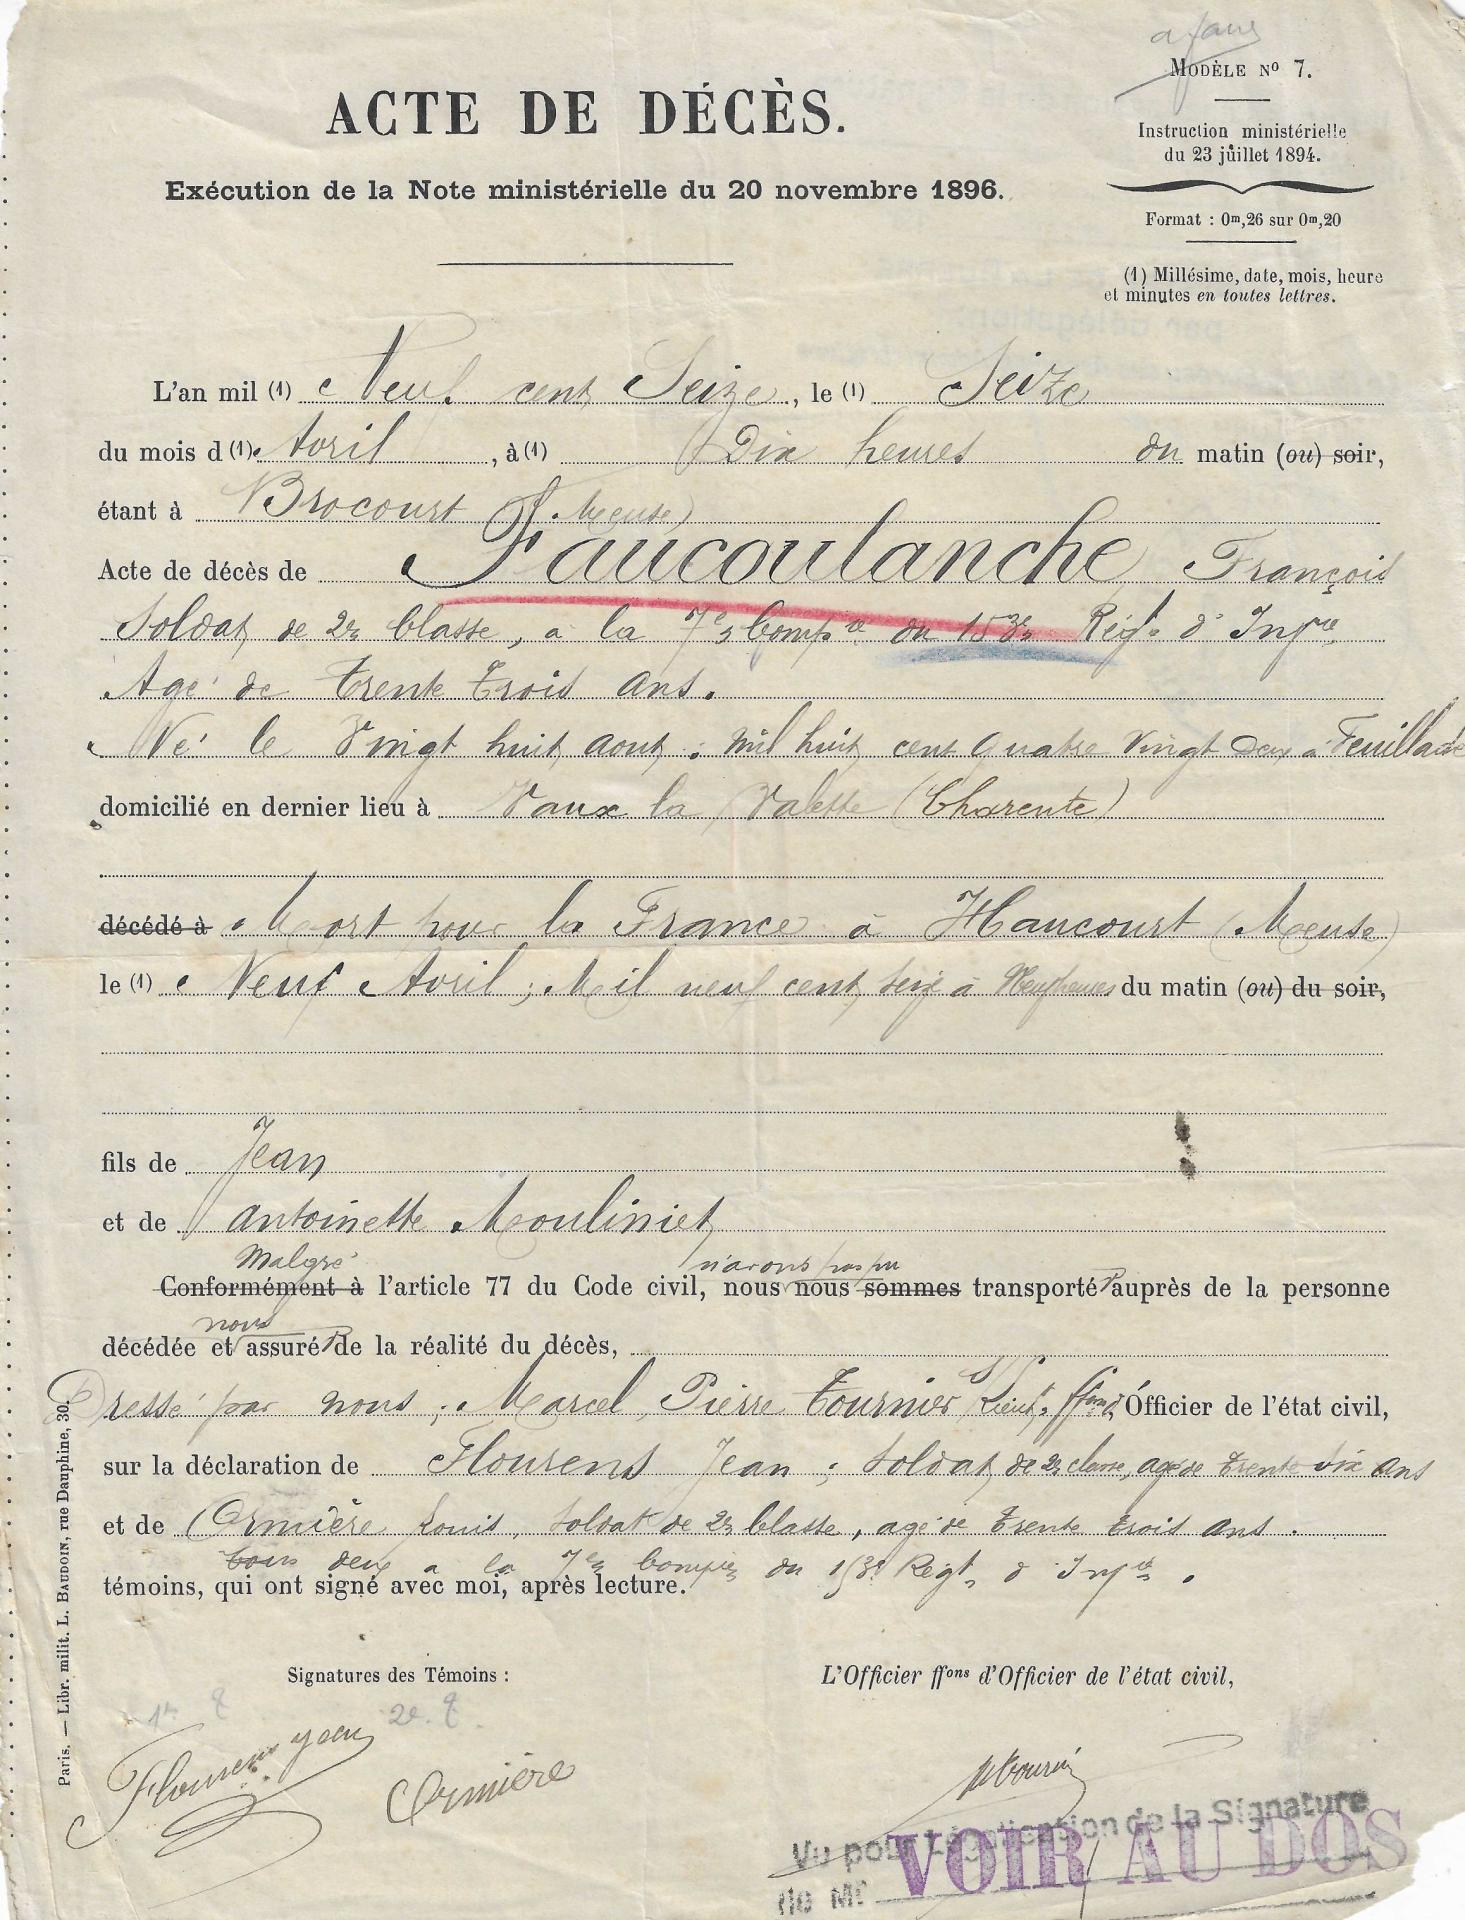 a faire
MODÈLE Nº 7.
ACTE DE DÉCÈS.
Exécution de la Note ministérielle du 20 novembre 1896.
Instruction ministérielle
du 23 juillet 1894.
Format : 0m,26 sur 0m,20
(1) Millésime, date, mois, heure
et minutes en toutes lettres.
L'an mil (1) Neuf cent Seize, le (1) Seize
du mois d (1) Avril, à (1) Dix heures du matin (ou) soir,
étant à Brocourt (Meuse)
Acte de décès de Faucoulanche François
Soldat de 2e Classe, a la 7e Compie du 153e Régt d'Infie
Agé de Trente Trois ans.
Né le Vingt huit aout : mil huit cent quatre vingt deux à Feuillade
domicilié en dernier lieu à Vaux la Valette (Charente)
décédé à Mort pour la France à Haucourt (Meuse)
le (1) Neuf Avril ; Mil neuf cent seize à Neuf heures du matin (ou) du soir,
fils de Jean
et de Antoinette Mouliniet
Malgré n'avons pas pu
Conformément à l'article 77 du Code civil, nous nous sommes transporter auprès de la personne
nous
décédée et assurer de la réalité du décès,
Dressé par nous ; Marcel, Pierre Tournier S/Lieut. ffons d' Officier de l'état civil,
sur la déclaration de Flourens Jean ; Soldat de 2e classe, agé de trente six ans
et de Ormière Louis, soldat de 2e Classe, agé de trente trois ans.
tous deux a la 7e Compie du 153e Régt d'Infie.
témoins, qui ont signé avec moi, après lecture.
Signatures des Témoins :
L'Officier ffons d'Officier de l'état civil,
1er T 2e T.
Flourens Jean
Ormière
Vu pour Légalisation de la Signature
de Mr
VOIR AU DOS
Paris. — Libr. milit. L. BAUDOIN, rue Dauphine, 30.